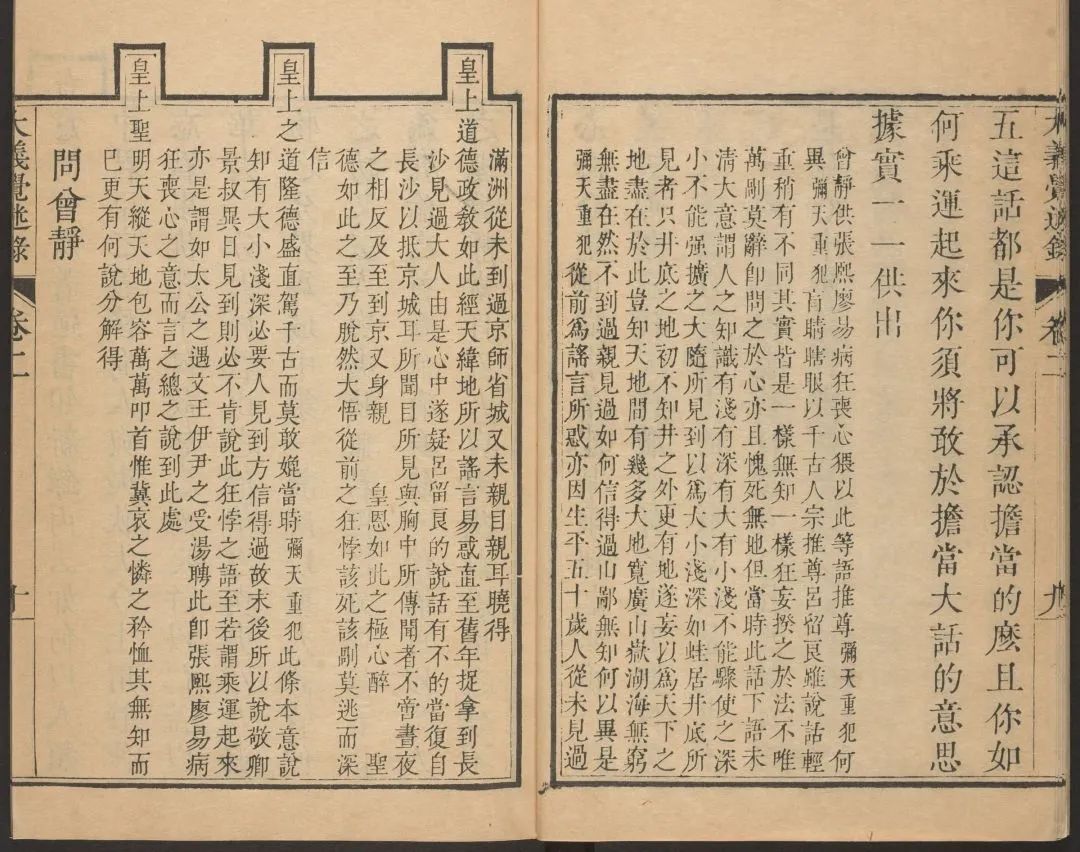 大義覺迷錄 卷二 九
五這話都是你可以承認擔當的麽且你如
何乘運起來你須將敢於擔當大話的意思
據實一一供出
曾靜供張熙廖易病狂喪心猥以此等語推尊彌天重犯何
異彌天重犯盲睛瞎眼以千古人宗推尊呂留良雖說話輕
重稍有不同其實皆是一樣無知一樣狂妄揆之於法不唯
萬剮莫辭卽問之於心亦且愧死無地但當時此話下語未
清大意謂人之知識有淺有深有大有小淺不能驟使之深
小不能强擴之大隨所見到以爲大小淺深如蛙居井底所
見者只井底之地初不知井之外更有地遂妄以爲天下之
地盡在於此豈知天地間有幾多大地寬廣山嶽湖海無窮
無盡在然不到過親見過如何信得過山鄙無知何以異是
彌天重犯從前爲謠言所惑亦因生平五十歲人從未見過
滿洲從未到過京師省城又未親目親耳曉得
皇上道德政敎如此經天緯地所以謠言易惑直至舊年捉拿到長
沙見過大人由是心中遂疑呂留良的說話有不的當復自
長沙以抵京城耳所聞目所見與胸中所傳聞者不啻晝夜
之相反及至到京又身親 皇恩如此之極心醉 聖
德如此之至乃脫然大悟從前之狂悖該死該剮莫逃而深
信
皇上之道隆德盛直駕千古而莫敢媲當時彌天重犯此條本意說
知有大小淺深必要人見到方信得過故末後所以說敬卿
景叔異日見到則必不肯說此狂悖之語至若謂乘運起來
亦是謂如太公之遇文王伊尹之受湯聘此卽張熙廖易病
狂喪心之意而言之總之說到此處
皇上聖明天縱天地包容萬萬叩首惟冀哀之憐之矜恤其無知而
已更有何說分解得
問曾靜
大義覺迷錄 卷二 十